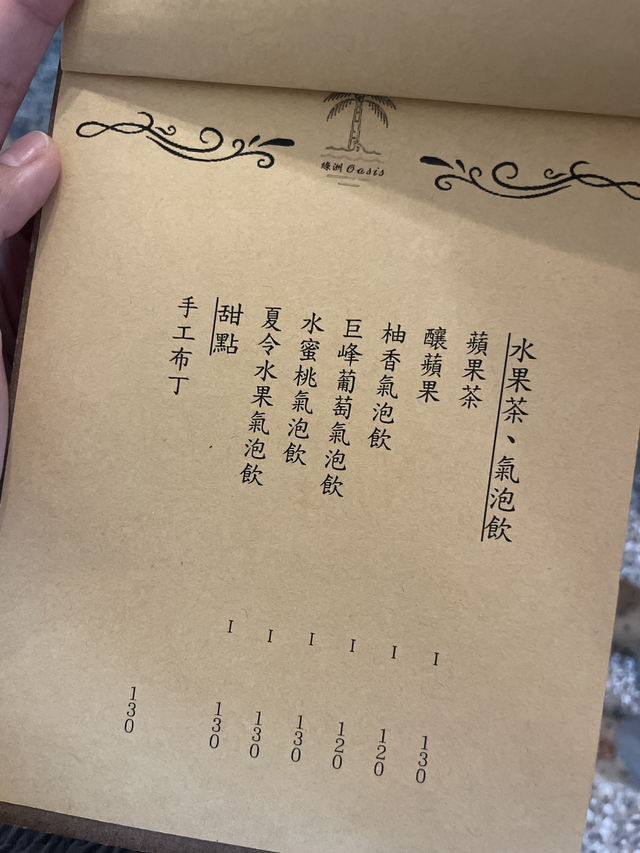 綠洲 Oasis
水果茶、氣泡飲
蘋果茶 I 130
釀蘋果 I 120
柚香氣泡飲 I 120
巨峰葡萄氣泡飲 I 130
水蜜桃氣泡飲 I 130
夏令水果氣泡飲 I 130
甜點
手工布丁 130